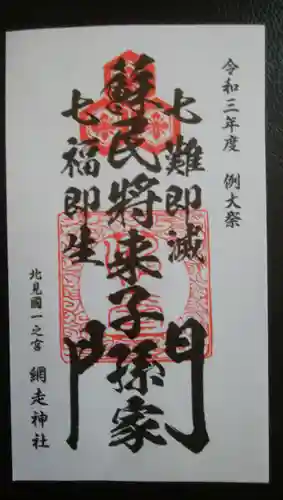 令和三年度 例大祭
七難即滅
蘇民将来子孫家門
七福即生
北見國一之宮 網走神社